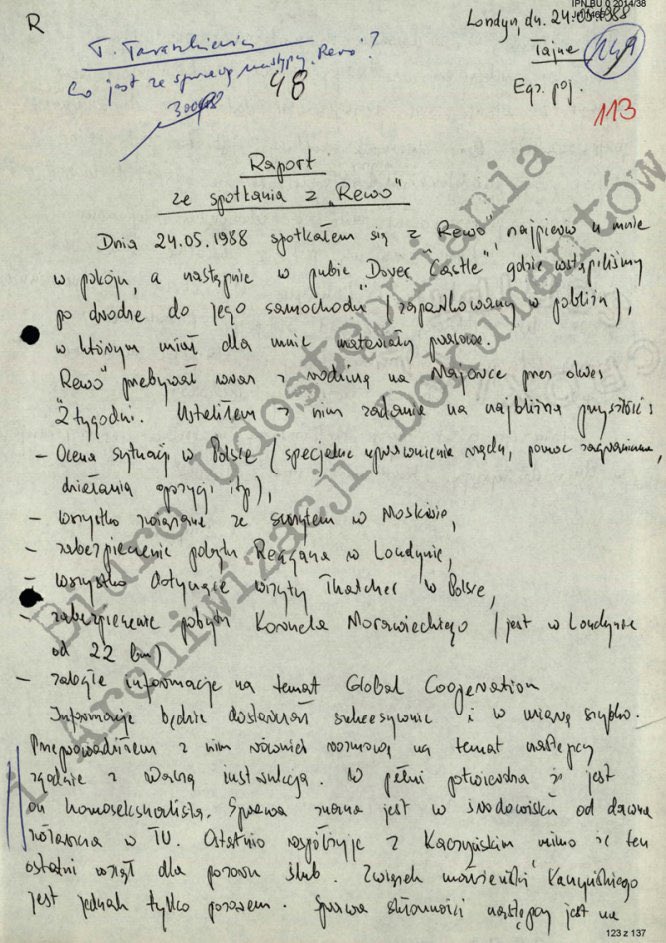 IPN BU 0 2014/38
R
Londyn, dn. 24.05.1988
Tajne
Egz. poj.
113
T. Taraszkiewicz
Co jest ze sprawą następcy "Rewo"?
48
Raport
ze spotkania z "Rewo"
Dnia 24.05.1988 spotkałem się z "Rewo" najpierw u mnie
w pokoju, a następnie w pubie "Dover Castle" gdzie wstąpiliśmy
po drodze do jego samochodu (zaparkowany w pobliżu),
w którym miał dla mnie materiały prasowe.
"Rewo" przebywał wraz z rodziną na Majorce przez okres
2 tygodni. Ustaliłem z nim zadania na najbliższą przyszłość:
- Ocena sytuacji w Polsce (specjalne uprawnienia rządu, pomoc zagraniczna,
działania opozycji itp),
- wszystko związane ze szczytem w Moskwie,
- zabezpieczenie pobytu Reagana w Londynie,
- wszystko dotyczące wizyty Thatcher w Polsce,
- zabezpieczenie pobytu Kornela Morawieckiego (jest w Londynie
od 22 bm)
- zaległe informacje na temat Global Cooperation
Informacje będzie dostarczał sukcesywnie i w miarę szybko.
Przeprowadziłem z nim również rozmowę na temat następcy
zgodnie z Waszą instrukcją. W pełni potwierdza że jest
on homoseksualistą. Sprawa znana jest w środowisku od dawna
zwłaszcza w TV. Ostatnio współżyje z Kaczyńskim mimo że ten
ostatni wziął dla pozoru ślub. Związek małżeński Kaczyńskiego
jest jednak tylko pozorem. Sprawa skłonności następcy jest na
Biuro Udostępniania
i Archiwizacji Dokumentów
123 z 137